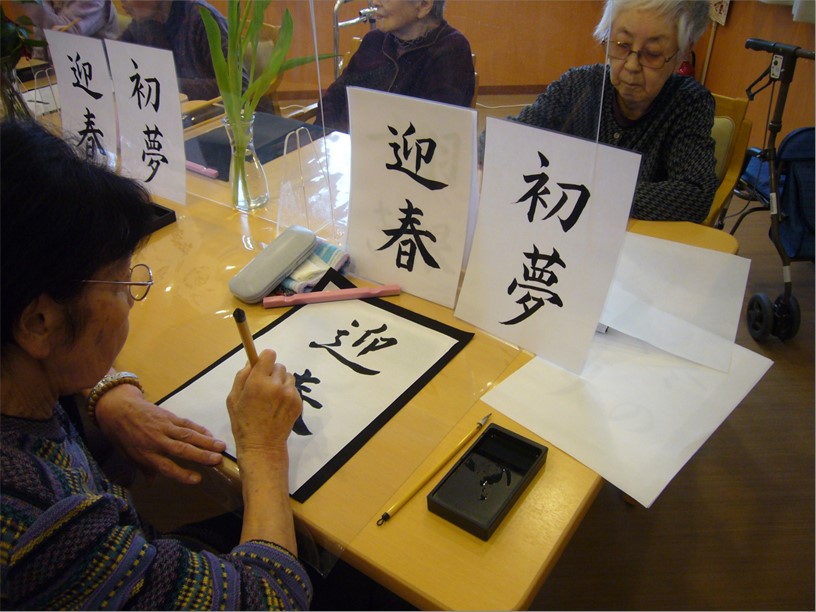 迎春
初夢
迎春
初夢
迎春